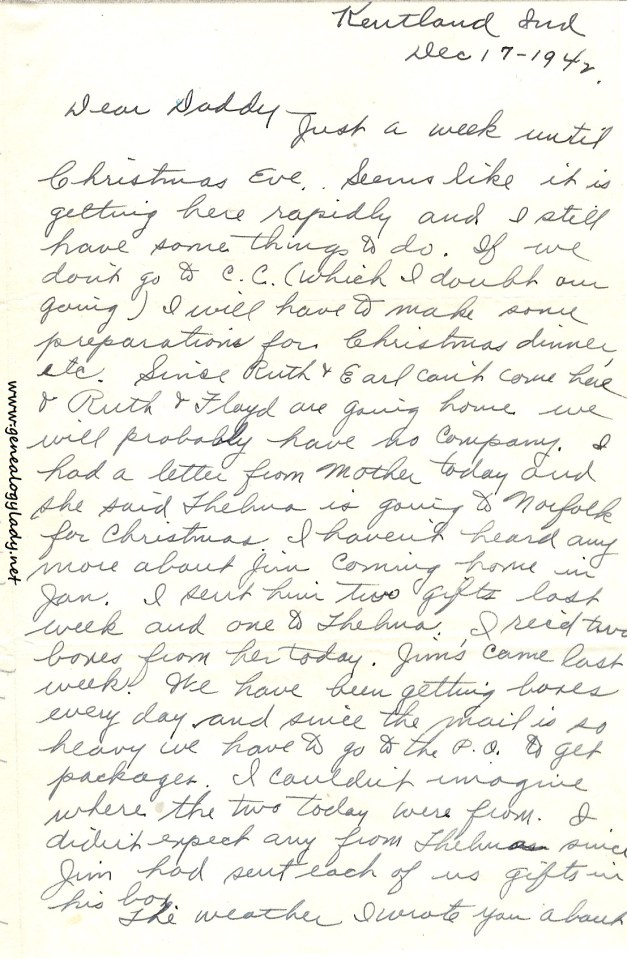 Kentland Ind
Dec 17-1942.
Dear Daddy-
Just a week until
Christmas Eve. Seems like it is
getting here rapidly and I still
have some things to do. If we
don't go to C.C. (which I doubt our
going) I will have to make some
preparations for Christmas dinner,
etc. Since Ruth & Earl can't come here
& Ruth & Floyd are going home we
will probably have no company. I
had a letter from Mother today and
she said Thelma is going to Norfolk
for Christmas. I haven't heard any
more about Jim coming home in
Jan. I sent him two gifts last
week and one to Thelma. I rec'd two
boxes from her today. Jim's came last
week. We have been getting boxes
every day and since the mail is so
heavy we have to go to the P.O. to get
packages. I couldn't imagine
where the two today were from. I
didn't expect any from Thelma since
Jim had sent each of us gifts in
his box.
The weather I wrote you about
www.genealogylady.net